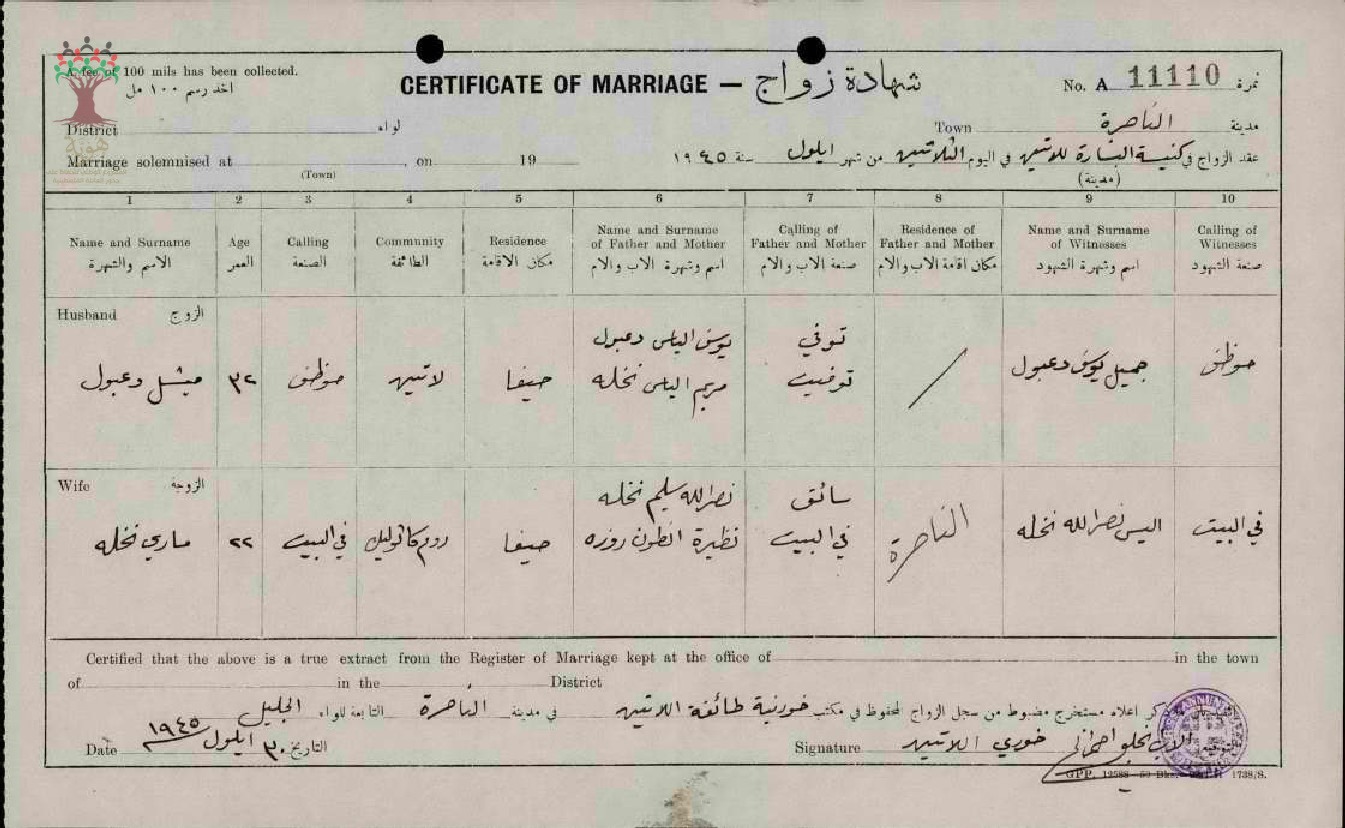 A fee of 100 mils has been collected.
اخذ رسم ١٠٠ مل
CERTIFICATE OF MARRIAGE — شهادة زواج
No. A 11110 نمرة
District لواء
Town الناصرة مدينة
Marriage solemnised at , on 19
(Town)
عقد الزواج في كنيسة البشارة للاتين في اليوم الثلاثين من شهر ايلول سنة ١٩٤٥
(مدينة)
1 2 3 4 5 6 7 8 9 10
Name and Surname
الاسم والشهرة
Age
العمر
Calling
الصنعة
Community
الطائفة
Residence
مكان الاقامة
Name and Surname
of Father and Mother
اسم وشهرة الاب والام
Calling of
Father and Mother
صنعة الاب والام
Residence of
Father and Mother
مكان اقامة الاب والام
Name and Surname
of Witnesses
اسم وشهرة الشهود
Calling of
Witnesses
صنعة الشهود
Husband الزوج
ميشيل دعبول
٣٢
موظف
لاتين
حيفا
يوسف الياس دعبول
مريم الياس نخله
توفي
توفيت
جميل يوسف دعبول
موظف
Wife الزوجة
ماري نخله
٢٢
في البيت
روم كاثوليك
حيفا
نصرالله سليم نخله
نظيرة انطون روزه
سائق
في البيت
الناصرة
اليس نصرالله نخله
في البيت
Certified that the above is a true extract from the Register of Marriage kept at the office of in the town
of in the District
اعلاه مستخرج مضبوط من سجل الزواج المحفوظ في مكتب خورنية طائفة اللاتين في مدينة الناصرة التابعة للواء الجليل
Date ٣٠ ايلول ١٩٤٥ التاريخ
Signature خوري اللاتين
G.P.P. 12588—50 Bks. 1738/S.
هوية